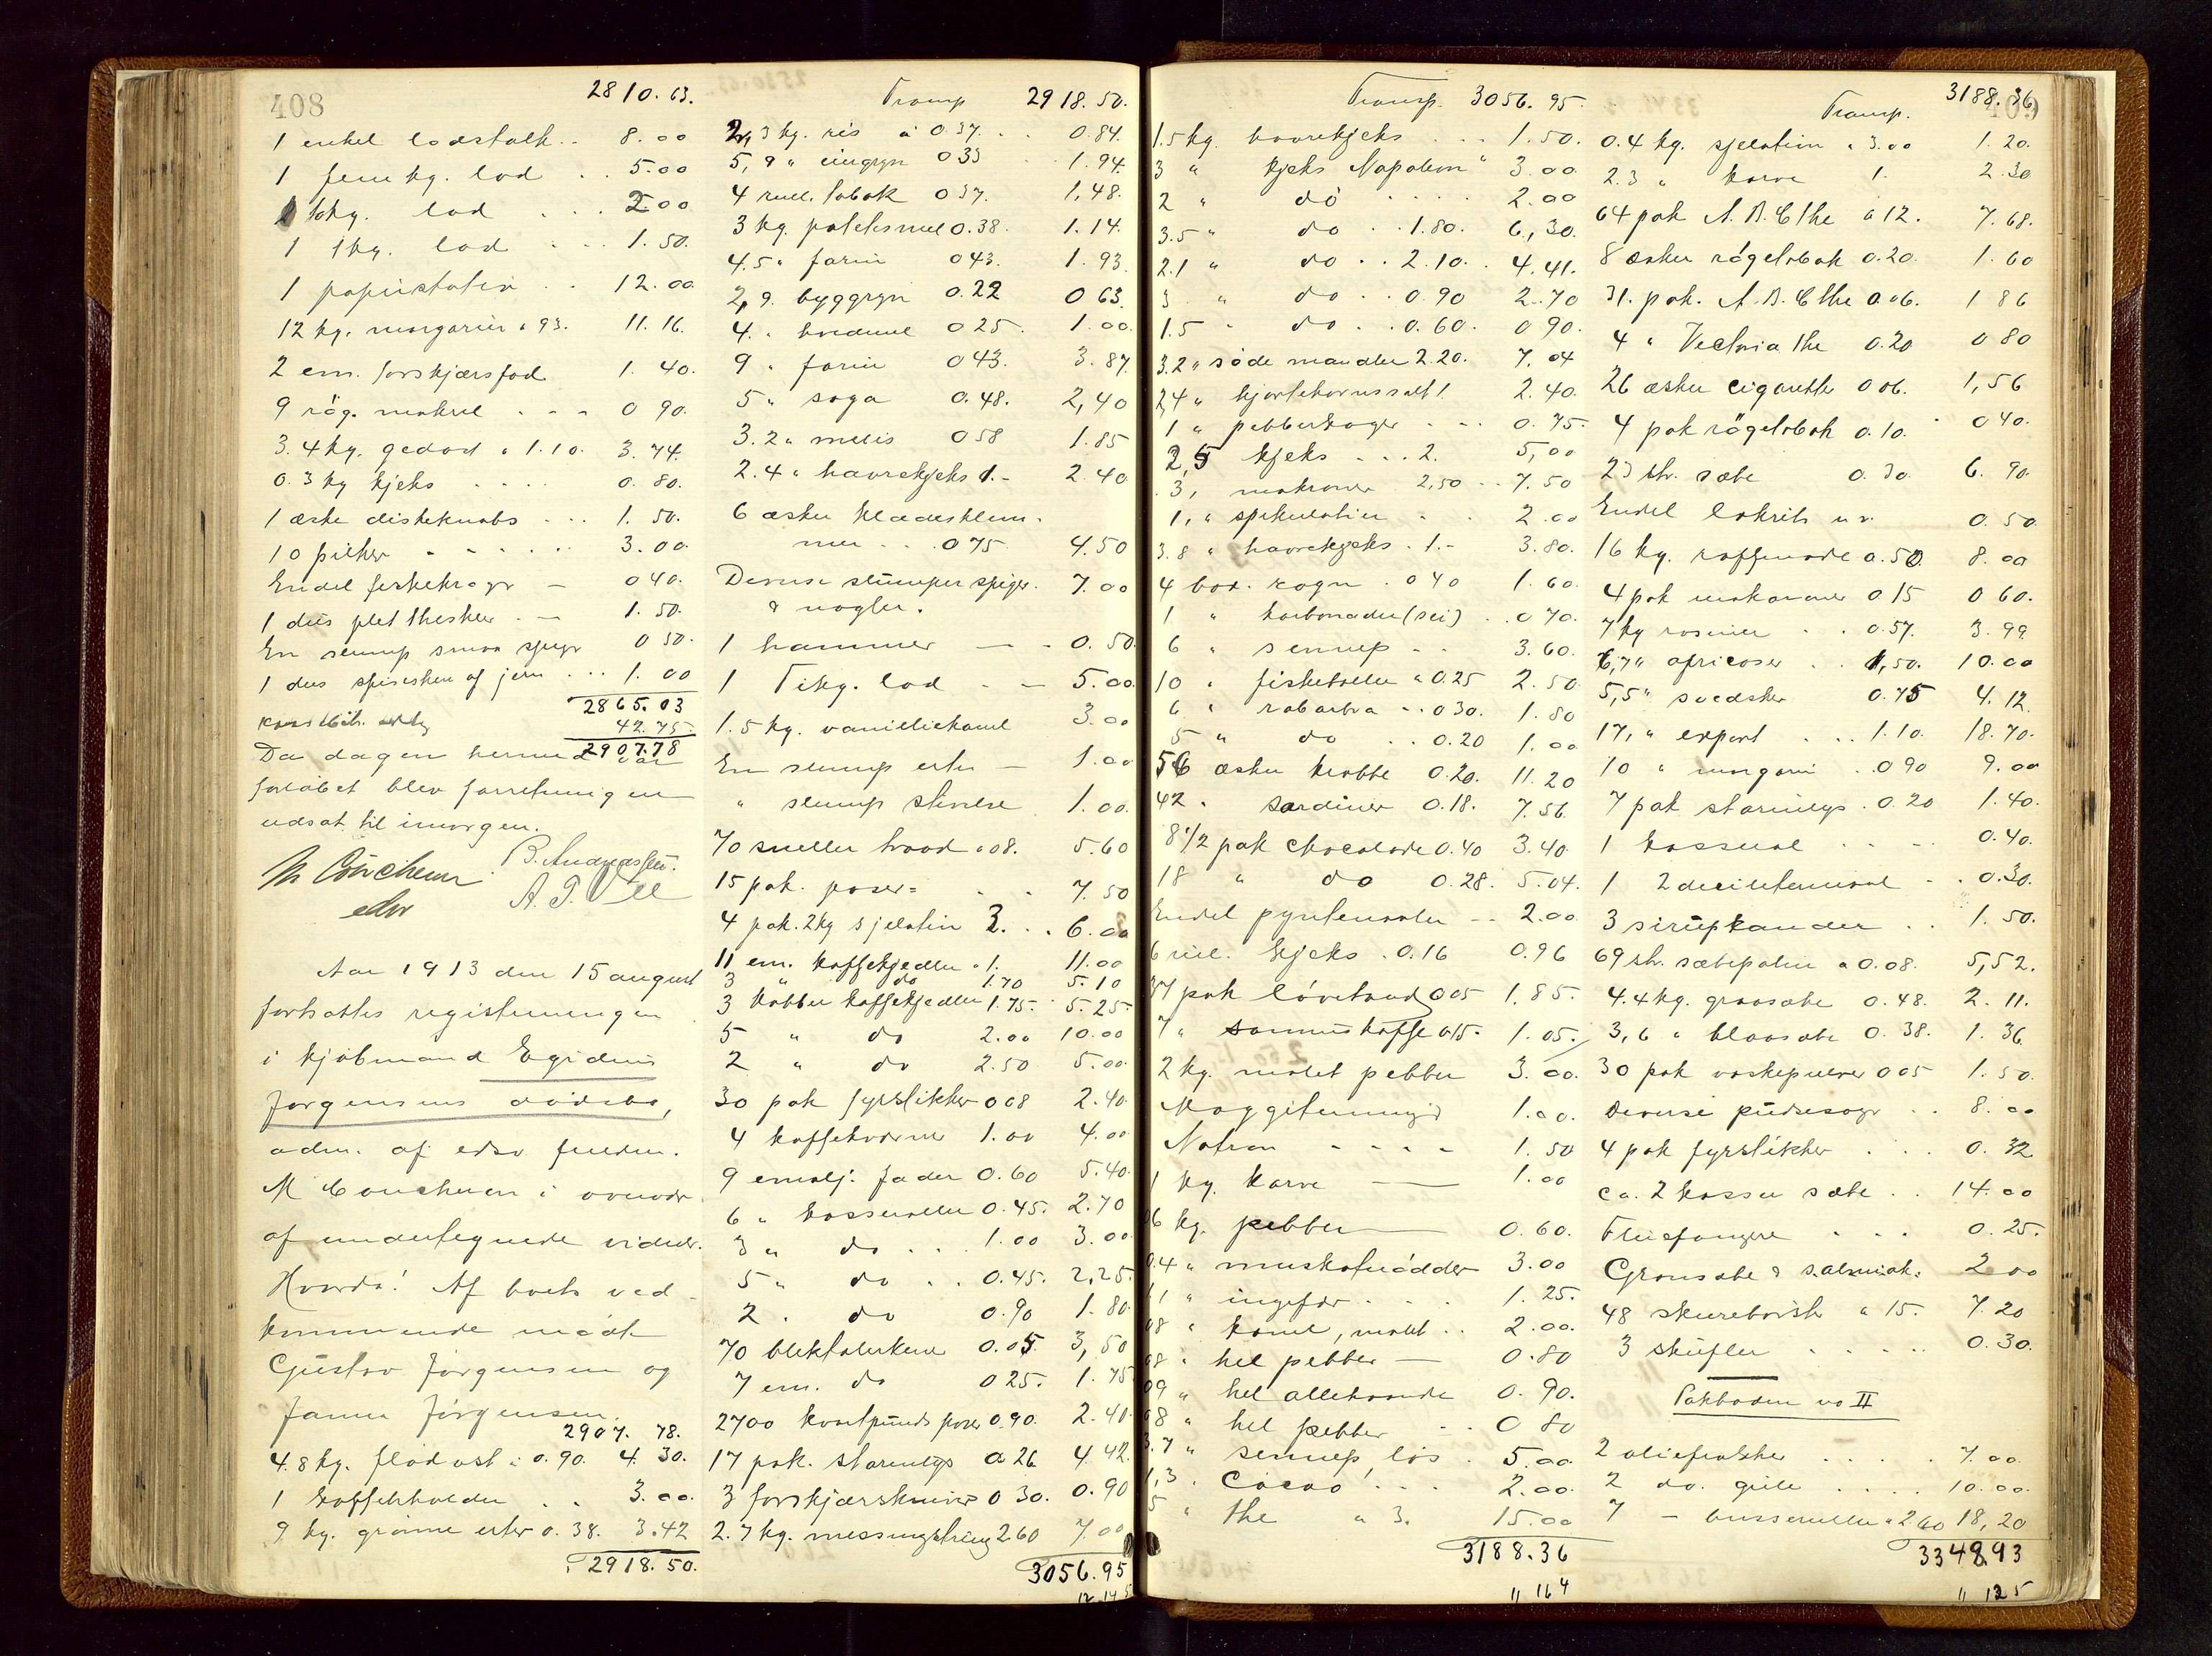 408
2810.63.
1 enkel lodstalk .. 8.00
1 fem kg. lod .. 5.00
1 to kg. lod ... 2.00
1 1kg. lod ... 1.50.
1 papirstativ .. 12.00
12 kg. margarin a 93. 11.16.
2 em. forskjærsfad 1.40.
9 røg. makrel - - - 0 90.
3.4 kg. gedost a 1.10. 3.74.
0.3 kg kjeks .... 0.80.
1 æske diskeknabs ... 1.50.
10 pilker ...... 3.00.
Endel fiskekroge - 0 40.
1 dus plet theskeer - 1.50.
En slump smaa spiger 0 50.
1 dus spiseskeer af jern ... 1.00
2865.03
42.75.
2907.78
Da dagen hermed var
forløbet blev forretningen
udsat til imorgen.
M Coucheron B. Andreassen.
edsv A. T. Vee
Aar 1913 den 15 august
fortsattes registreringen
i kjøbmand Egidius
Jørgensens dødsbo,
adm. af edsv fuldm.
M Coucheron i overvær
af undertegnede vidner.
Hvorda! Af boets ved-
kommende mødte
Gustav Jørgensen og
Janna Jørgensen.
2907.78.
4.8 kg. flødost a 0.90. 4.30.
1 kaffeholder .. 3.00.
9 kg. grønne erter 0.38. 3.42
2918.50.
Transp 2918.50.
2,3 kg. ris a 0.37. .. 0.84.
5,9 " 0 33 .. 1.94.
4 rull. tobak 0 37. 1,48.
3 kg. potetesmel 0.38. 1.14.
4.5 " farin 0 43. 1.93.
2,9. byggryn 0.22 0 63.
4. " hvedemel 0 25. 1.00.
9 " farin 0 43. 3.87.
5 " sago 0.48. 2,40
3.2 " melis 0 58 1.85
2.4 " havrekjeks 1.- 2.40
6 æsker klædesklem-
mer .. 0 75 4.50
Diverse slumper spiger. 7.00
& nagler.
1 hammer - - 0.50.
1 Tikg. lod - - 5.00.
1.5 kg. vanilliekanel 3.00
En slump erter - 1.00
" slump stivelse 1.00.
70 sneller traad a 08. 5.60
15 pak. poser = .. 7.50
4 pak. 2kg sjelatin 3. .. 6.00
11 em. kaffekjedler a 1. 11.00
3 " do 1.70 5.10
3 kobber kaffekjedler 1.75. 5.25.
5 " do 2.00 10.00
2 " do 2.50 5.00.
30 pak fyrstikker 0 08 2.40.
4 kaffekværner 1.00 4.00
9 emalj. fader 0.60 5.40.
6 " kasseroller 0.45. 2.70
3 " do ... 1.00 3.00
5 " do .. 0.45. 2,25.
2. do 0.90 1.80.
70 bliktalerkener 0.05. 3,50
7 em. do 0 25. 1.75
2700 kvartpunds poser 0.90. 2.40.
17 pak. stearinlys a 26 4.42.
3 forskjærskniver 0 30. 0.90
2.7 kg. messingstreng 2.60 7.00
3056.95
12.145
Transp. 3056.95.
1.5 kg. havrekjeks ... 1.50.
3 " kjeks "Napoleon" 3.00
2 " do .... 2.00
3.5 " do .. 1.80. 6,30.
2.1 " do .. 2.10. 4.41.
3 " do .. 0.90 2.70
1.5 " do .. 0.60. 0 90.
3.2 " søde mandler 2.20. 7.04
2,4 " hjortehornssalt 1. 2.40.
1 " pebberkager ... 0.75.
2,5 kjeks ... 2. 5,00
3, makroner 2,50 .. 7.50
1, " spekulatier .. 2.00
3.8 " havrekjeks . 1.- 3.80.
4 box. rogn . 0 40 1.60.
1 " karbonader (sei) .. 0 70.
6 " sennep .. 3.60.
10 " fiskeboller a 0.25 2.50.
6 " rabarbra .. 0 30. 1.80
5 " do .. 0.20 1.00
56 æsker krabbe 0.20. 11.20
42 " sardiner 0.18. 7.56.
8 1/2 pak chocolade 0.40 3.40.
18 " do 0.28. 5.04.
Endel pyntenaaler -- 2.00
6 rul. kjeks . 0.16 0.96
37 pak løvetand 0 05 1.85.
7 " sommerkaffe 0 15. 1.05.
2 kg. malet pebber 3.00.
Maggiterninger 1.00.
Natron - - - - 1.50
1 kg. karve - 1.00
06 kg. pebber - 0.60.
0.4 " muskatnødder 3.00
11 " ingefær .... 1.25.
08 " kanel, malet .. 2.00.
08 " hel pebber - 0.80
09 " hel allehaande 0.90.
08 " hel pebber .. 0 80
3.7 " sennep løs . 5.00
1,3. Cacao ... 2.00.
5 " the a 3. 15.00
3188.36
" 164
409
3188.36
Transp.
0.4 kg. sjelatin a 3.00 1.20.
2.3 " karve 1. 2.30
64 pak A.B.C the a 12. 7.68.
8 æsker røgetobak 0.20. 1.60
31. pak. A.B.C the 0.06. 1 86
4 " Victoria the 0.20 0 80
26 æsker cigaretter 0 06. 1,56
4 pak røgetobak 0.10. 0 40.
23 str. sæbe 0.30. 6.90.
Endel lakrits m.v. 0.50.
16 kg. raffinade 0.50 8.00
4 pak makaroner 0 15 0 60.
7 kg rosiner .. 0.57. 3.99.
6,7 " apricoser .. 1,50. 10.00
5,5 " svedsker 0.75 4.12.
17, " export ... 1.10. 18.70.
10 " margarin .. 0 90 9.00
7 pak stearinlys . 0.20 1.40.
1 kasserol .... 0.40.
1 2 decilitermaal .. 0.30.
3 sirupkander .. 1.50.
69 str. sæbepalin a 0.08. 5,52.
4.4 kg. grønsæbe 0.48. 2.11.
3,6 " blaasæbe 0.38. 1.36
30 pak vaskepulver 0 05 1.50.
Diverse pudsesager .. 8.00
4 pak fyrstikker ... 0.32
ca. 2 kasser sæbe .. 14.00
Fluefangere ... 0.25.
Grønsæbe & salmiak. 2 00
48 skurebørster a 15. 7.20
3 skufler ..... 0.30.
Pakboden no II
2 oliefrakker .... 7.00.
2 do. gule .... 10.00.
7 - busseruller a 2.60 18,20
3348.93
" 125